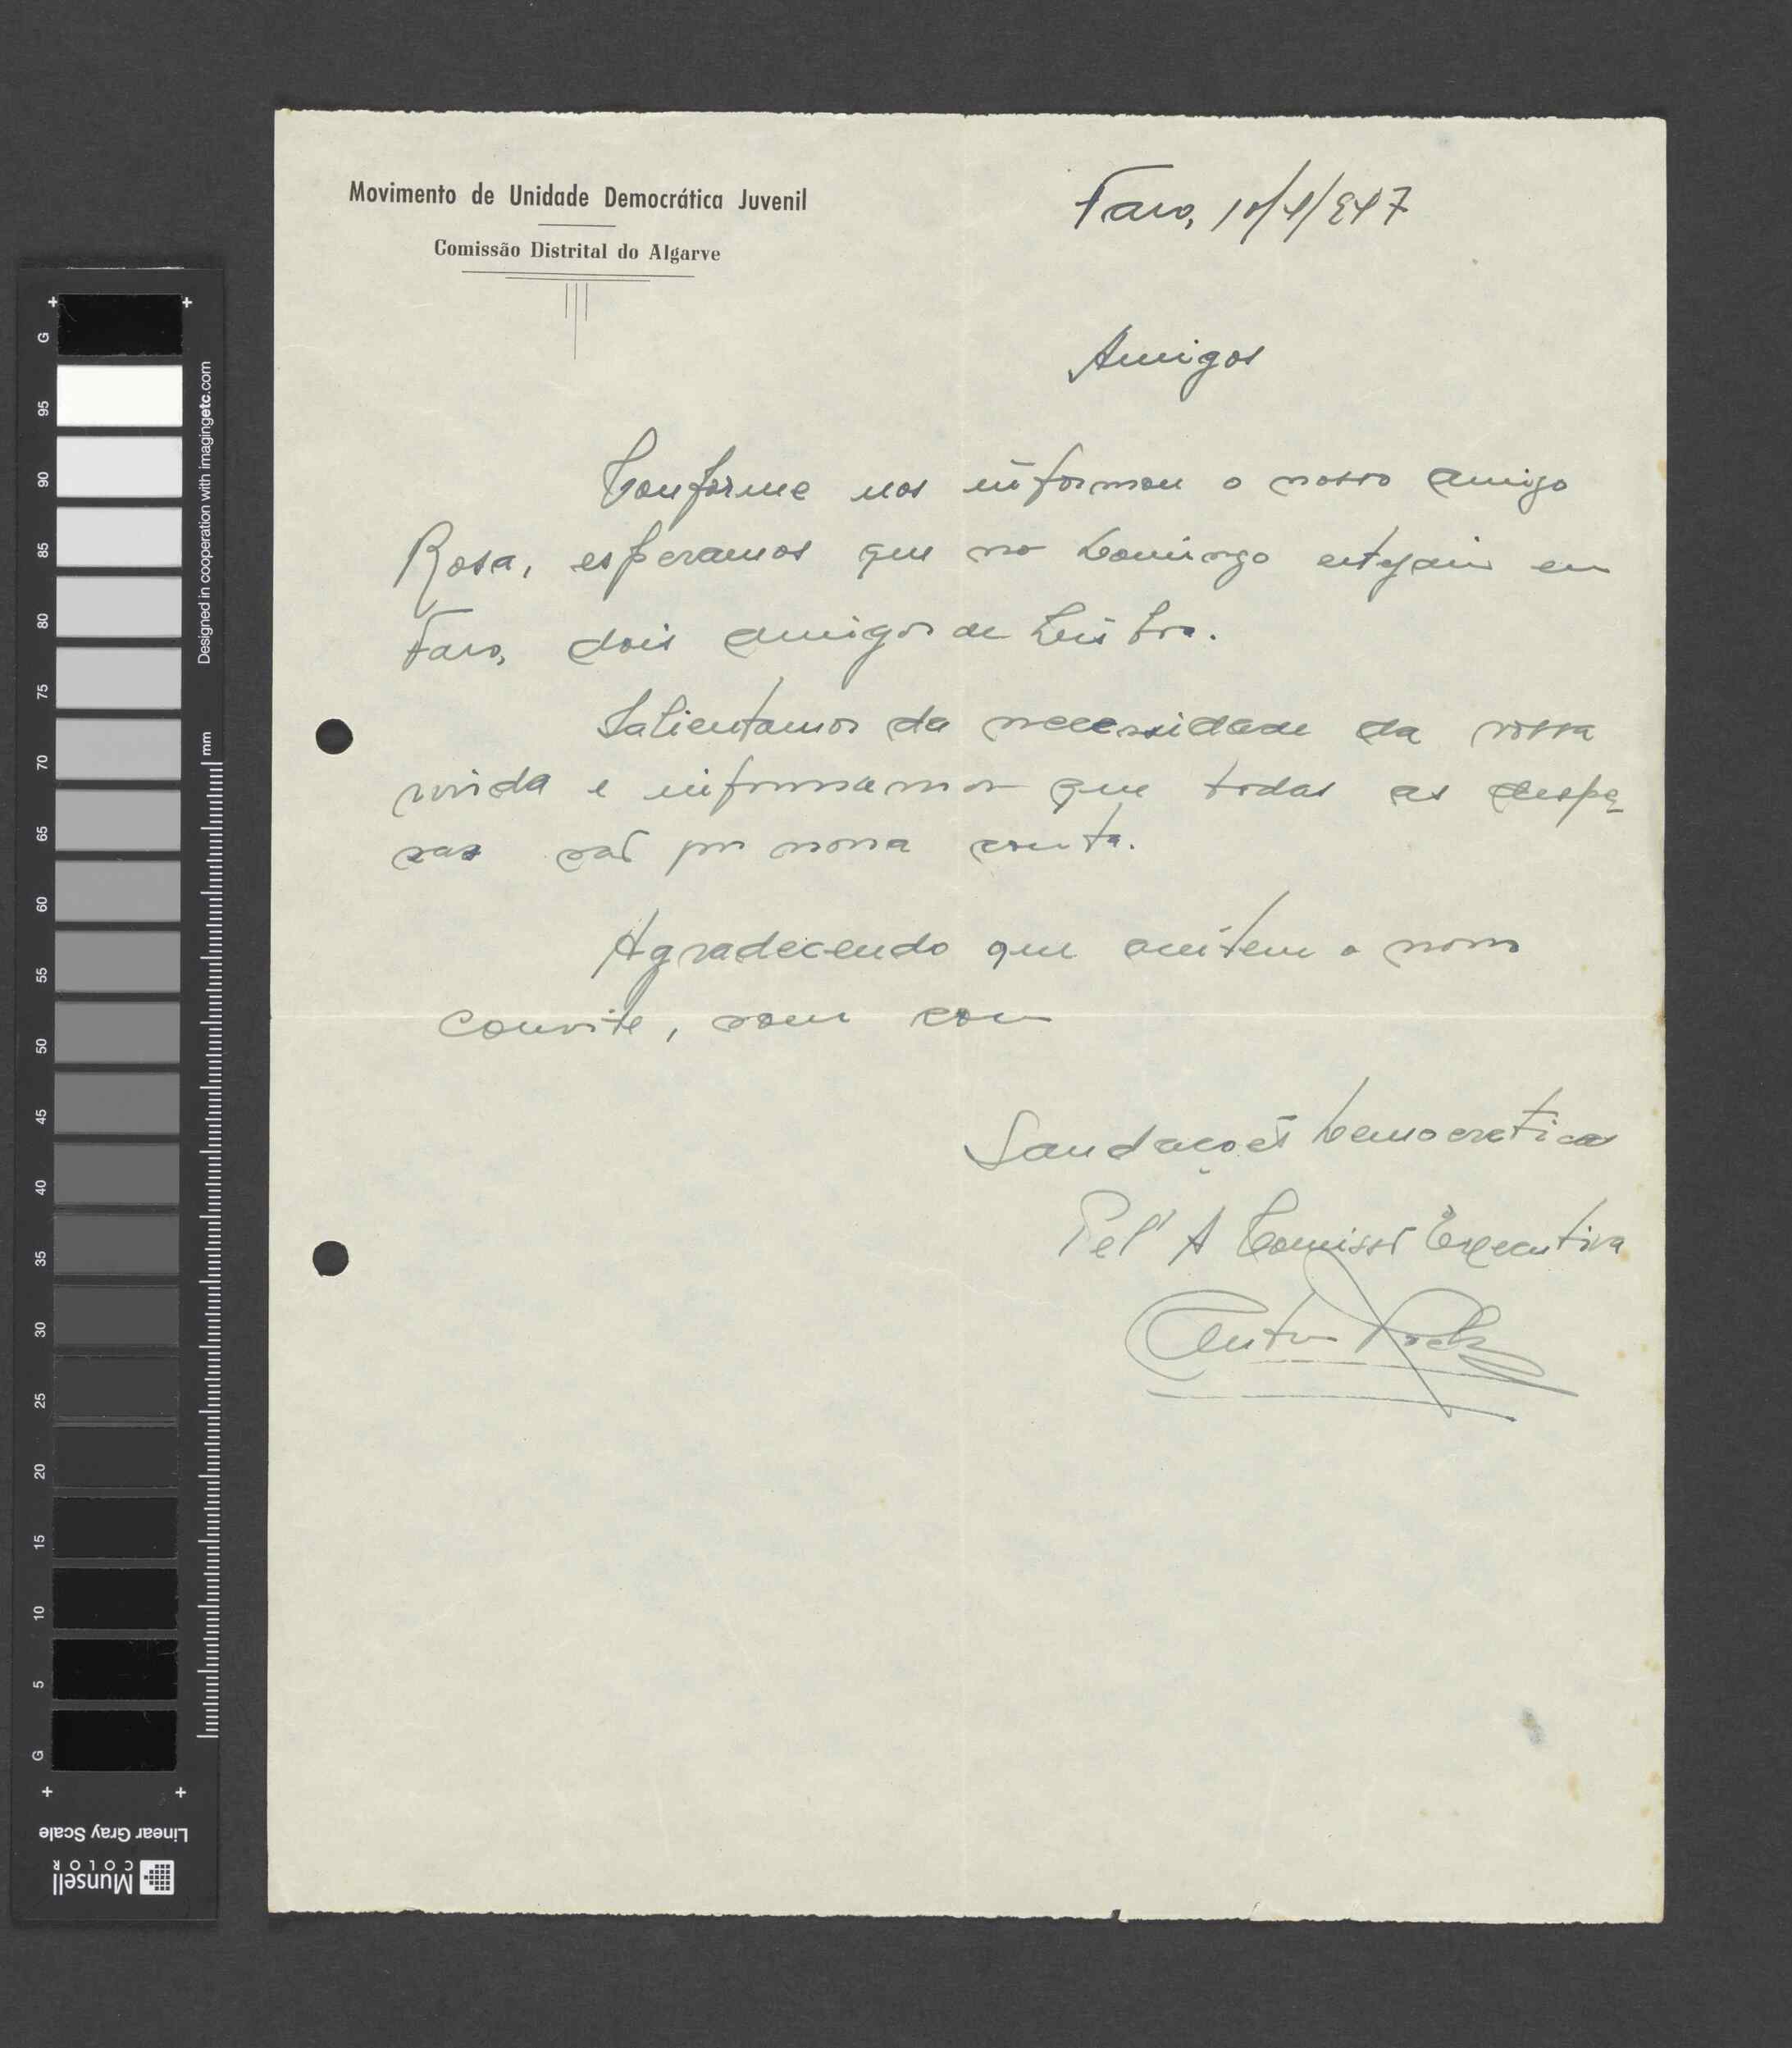 Movimento de Unidade Democrática Juvenil
Comissão Distrital do Algarve
Faro, 10/4/947
Amigos
Conforme nos informou o nosso amigo
Rosa, esperamos que no Domingo estejam em
Faro, dois amigos de
Salientamos da necessidade da vossa
vinda e informamos que todas as despe-
sas são por nossa conta.
Agradecendo que aceitem o nosso
convite, somos com
Saudações Democraticas
Pel' A Comissão Executiva
G 95 90 85 80 75 70 65 60 55 50 45 40 35 30 25 20 15 10 5 G
Designed in cooperation with imagingetc.com
mm
Linear Gray Scale
Munsell
COLOR